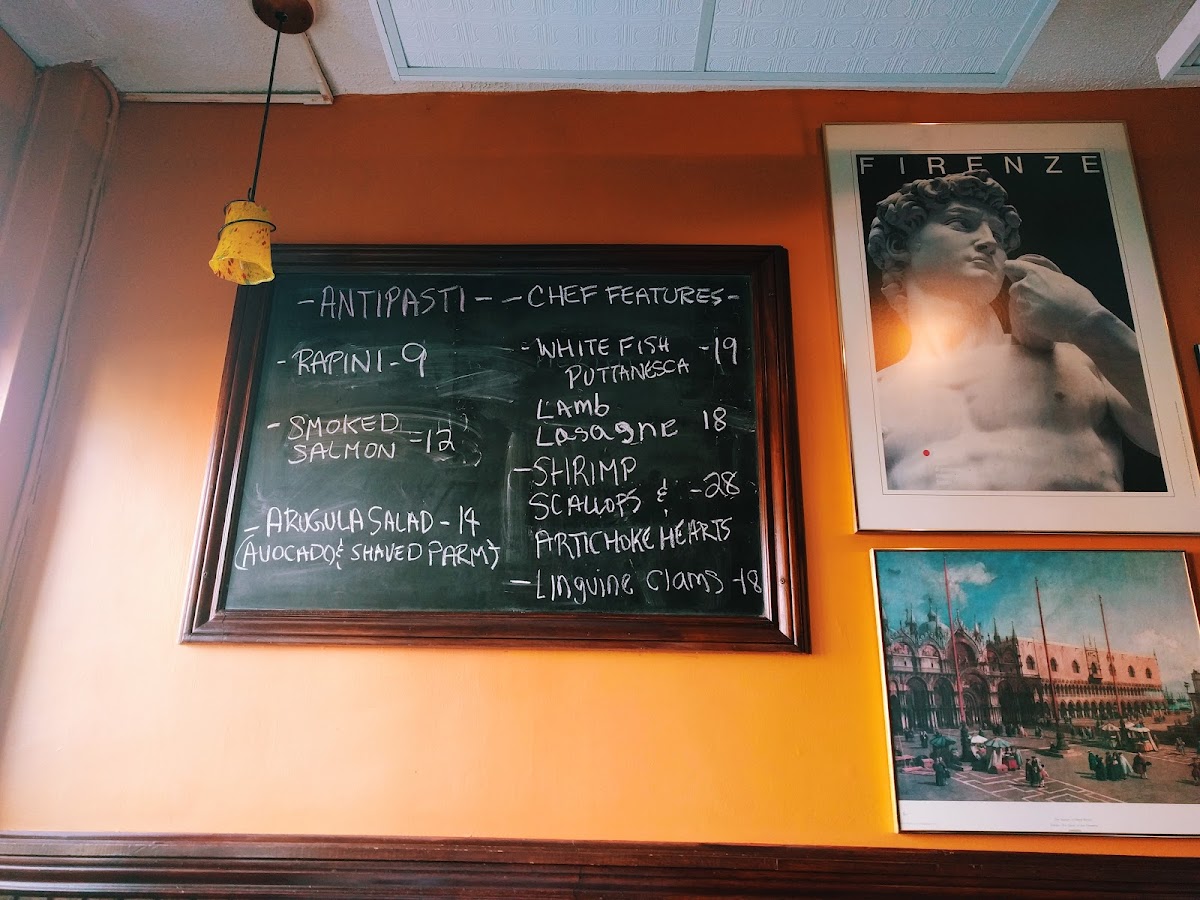 FIRENZE
- ANTIPASTI -
- RAPINI - 9
- SMOKED
SALMON - 12
- ARUGULA SALAD - 14
(AVOCADO & SHAVED PARM)
- CHEF FEATURES -
- WHITE FISH - 19
PUTTANESCA
Lamb
Lasagne 18
- SHRIMP
SCALLOPS & - 28
ARTICHOKE HEARTS
- Linguine Clams - 18